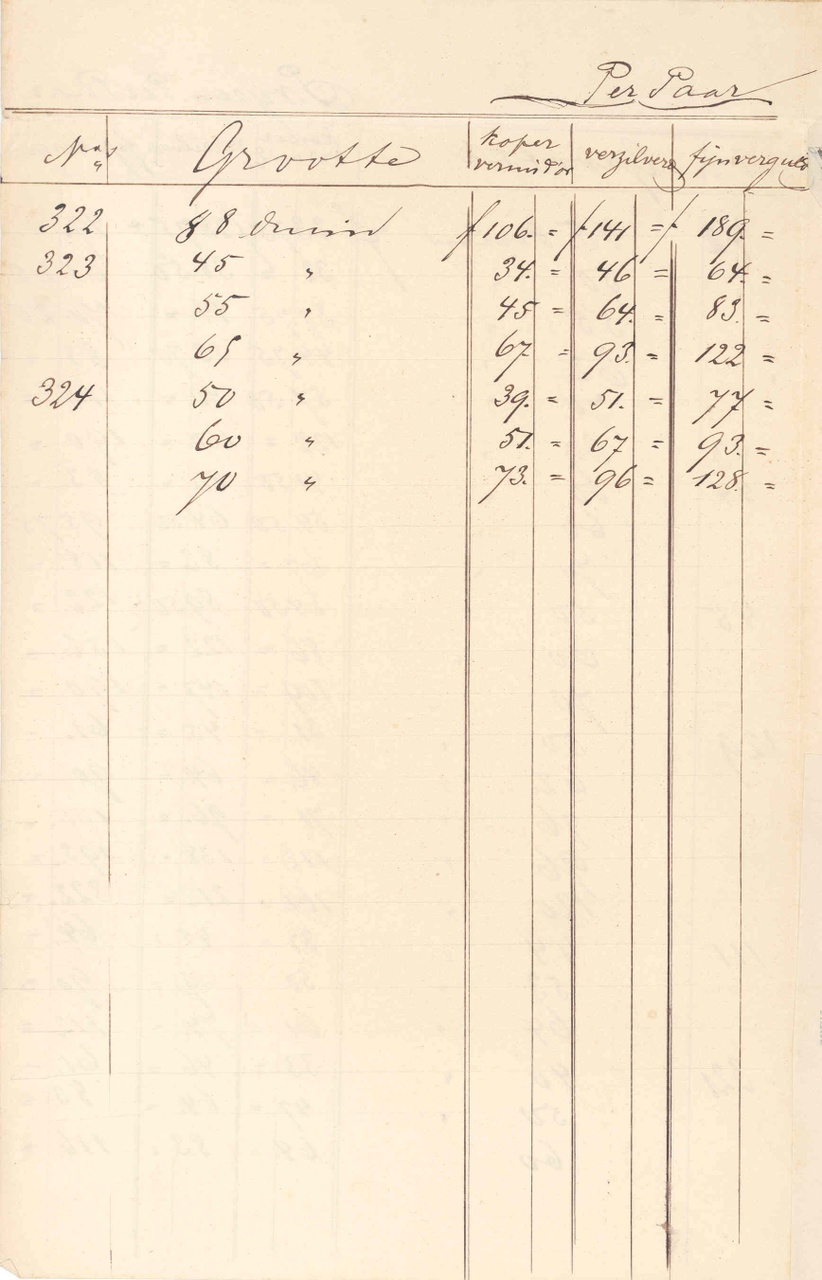 Per Paar
Nos Grootte koper vernis d'or verzilverd fijn verguld
322 88 duim f 106. = f 141 = f 189. =
323 45 " 34. = 46 = 64. =
55 " 45 = 64. = 83. =
65 " 67 = 93. = 122 =
324 50 " 39. = 51. = 77 =
60 " 51. = 67 = 93. =
70 " 73. = 96 = 128. =